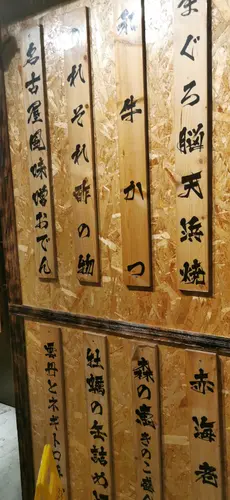 まぐろ脳天浜焼
牛かつ
それぞれ酢の物
名古屋風味噌おでん
赤海老
森の恵きのこ
牡蠣の缶詰め
雲丹とネギトロ